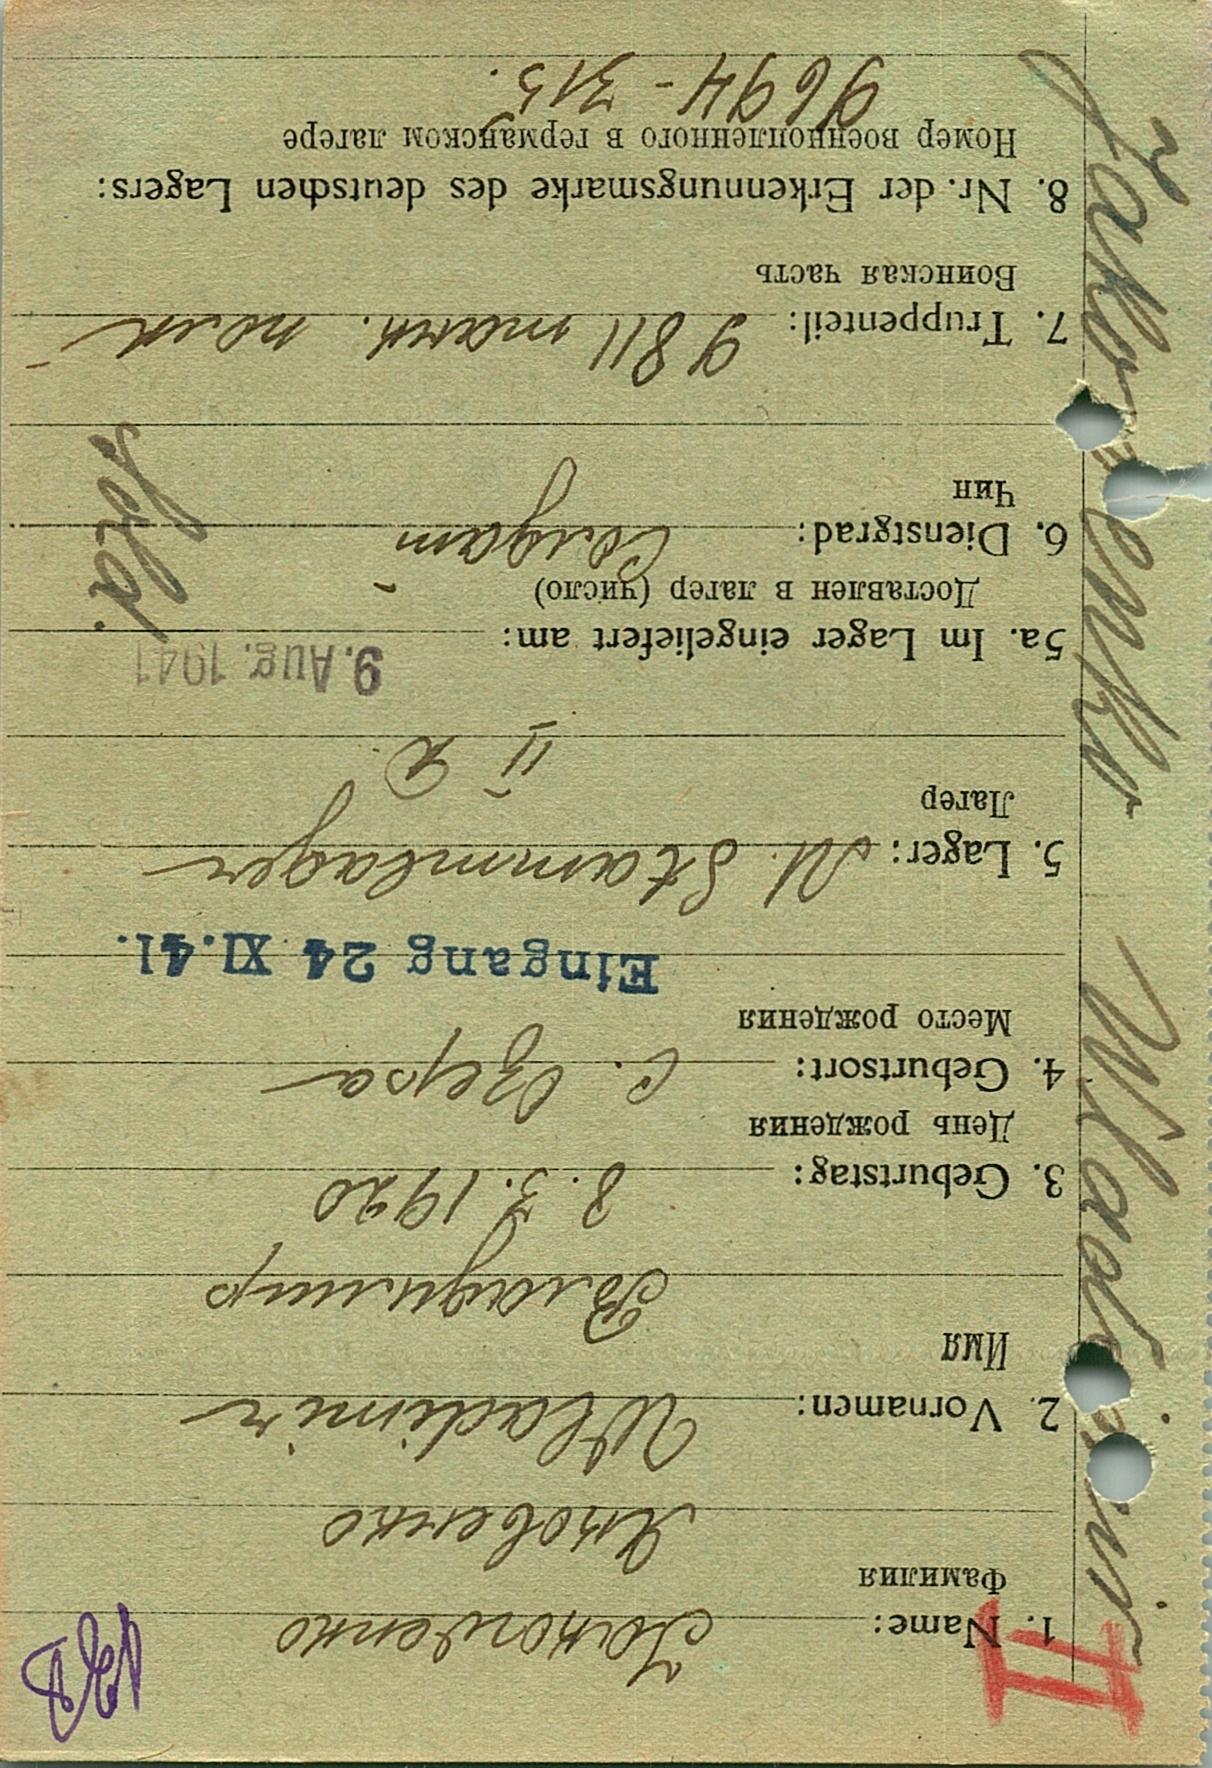 II
1. Name: Jakowenko
Фамилия
Яковенко
2. Vornamen: Wladimir
Имя
Владимир
3. Geburtstag: 8. 3. 1920
День рождения
4. Geburtsort: с. Озера
Место рождения
Eingang 24 XI.41.
5. Lager: M. Stammlager
Лагер
II
5a. Im Lager eingeliefert am: 9. Aug. 1941
Доставлен в лагер (число)
6. Dienstgrad: Солдат
Чин
Sold.
7. Truppenteil: 9811 танк. полк
Воинская часть
8. Nr. der Erkennungsmarke des deutschen Lagers:
Номер военнопленного в германском лагере
9694 - 315.
Jakowenko Wladimir